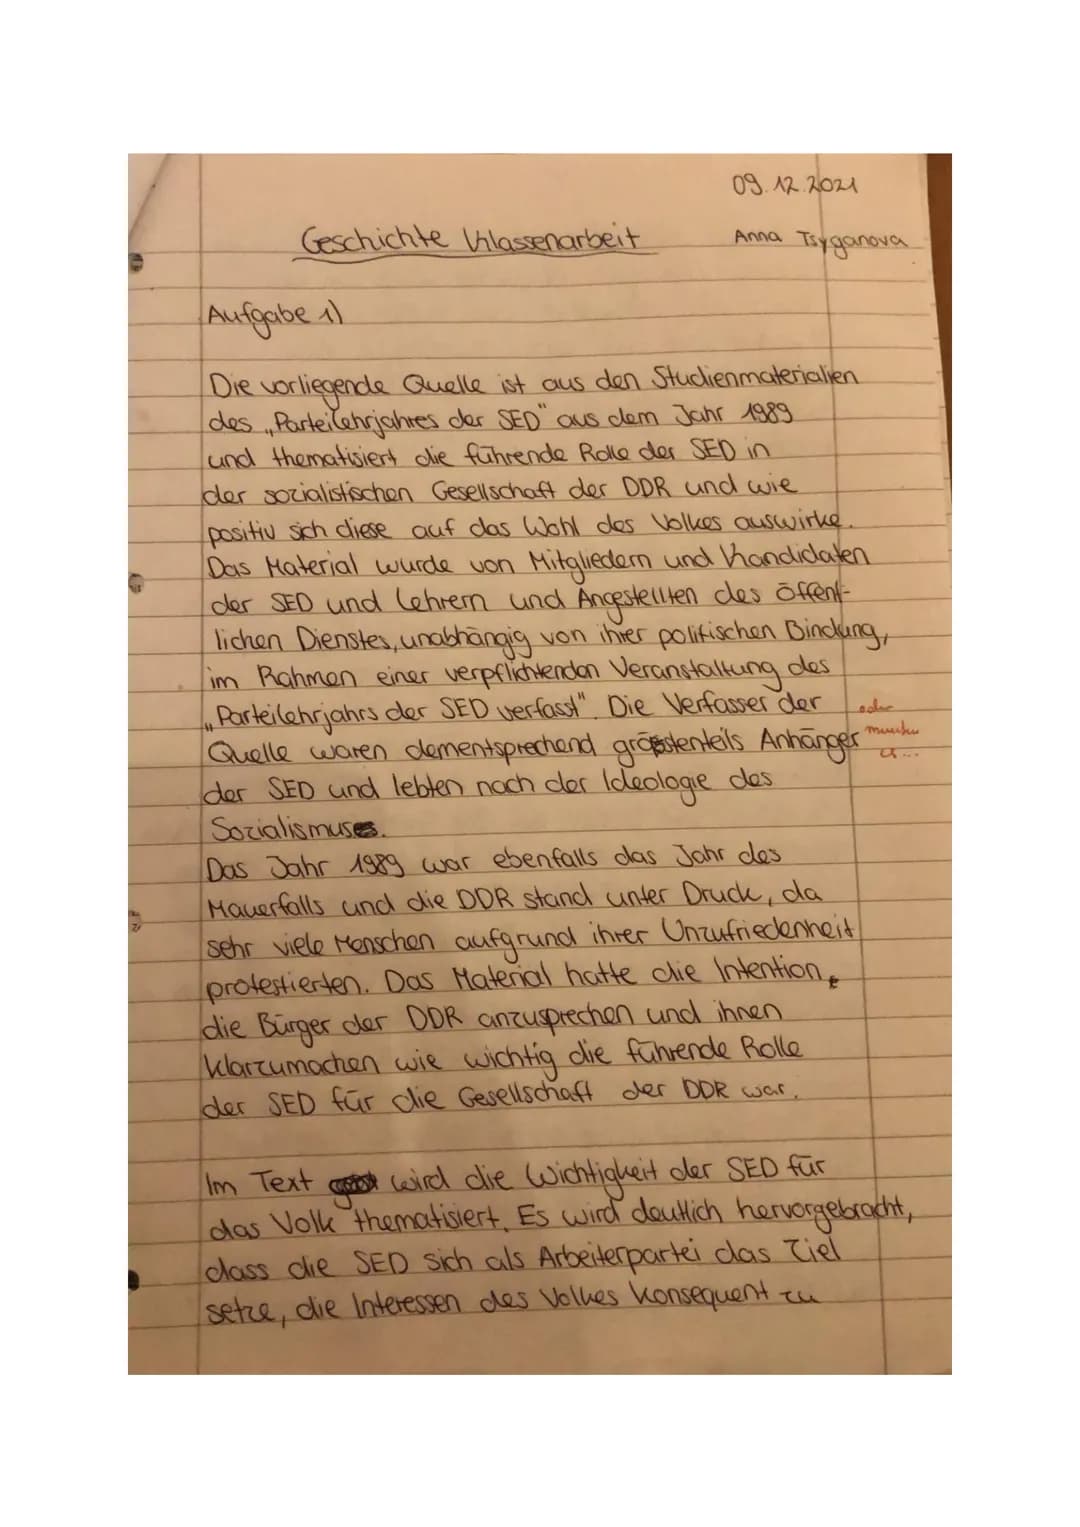 09.12.2021
Geschichte Klassenarbeit
Anna Tsyganova
Aufgabe 1)
Die vorliegende Quelle ist aus den Studienmaterialien
des „Parteilehrjahres der SED" aus dem Jahr 1989
und thematisiert die führende Rolle der SED in
der sozialistischen Gesellschaft der DDR und wie
positiv sich diese auf das Wohl des Volkes auswirke.
Das Material wurde von Mitgliedern und Kandidaten
der SED und Lehrern und Angestellten des öffent-
lichen Dienstes, unabhängig von ihrer politischen Bindung,
im Rahmen einer verpflichtenden Veranstaltung des
„Parteilehrjahrs der SED verfasst". Die Verfasser der
oder
Quelle waren dementsprechend grösstenteils Anhänger
der SED und lebten nach der Ideologie des
Sozialismus.
Das Jahr 1989 war ebenfalls das Jahr des
Mauerfalls und die DDR stand unter Druck, da
sehr viele Menschen aufgrund ihrer Unzufriedenheit
protestierten. Das Material hatte die Intention,
die Bürger der DDR anzusprechen und ihnen
klarzumachen wie wichtig die führende Rolle
der SED für die Gesellschaft der DDR war.
Im Text wird die Wichtigkeit der SED für
das Volk thematisiert. Es wird deutlich hervorgebracht,
dass die SED sich als Arbeiterpartei das Ziel
setze, die Interessen des Volkes konsequent zu